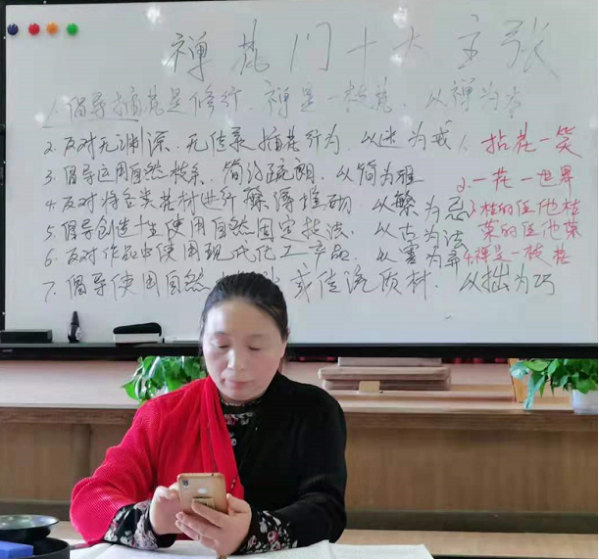 禅花门十大主张
1.倡导插花是修行.禅是一枝花.以禅为本
2.反对无渊源.无传承插花行为.以迷为戒
3.倡导运用自然枝条.简洁疏朗.以简为雅
4.反对将各类花材进行 堆砌.以繁为忌
5.倡导创造 使用自然固定技法.以古为法
6.反对作品中使用现代化工产品.以害为弃
7.倡导使用自然 或传统质材.以拙为巧
1.拈花一笑
2.一花一世界
3.枝的伍他枝
叶的伍他叶
4.禅是一枝花